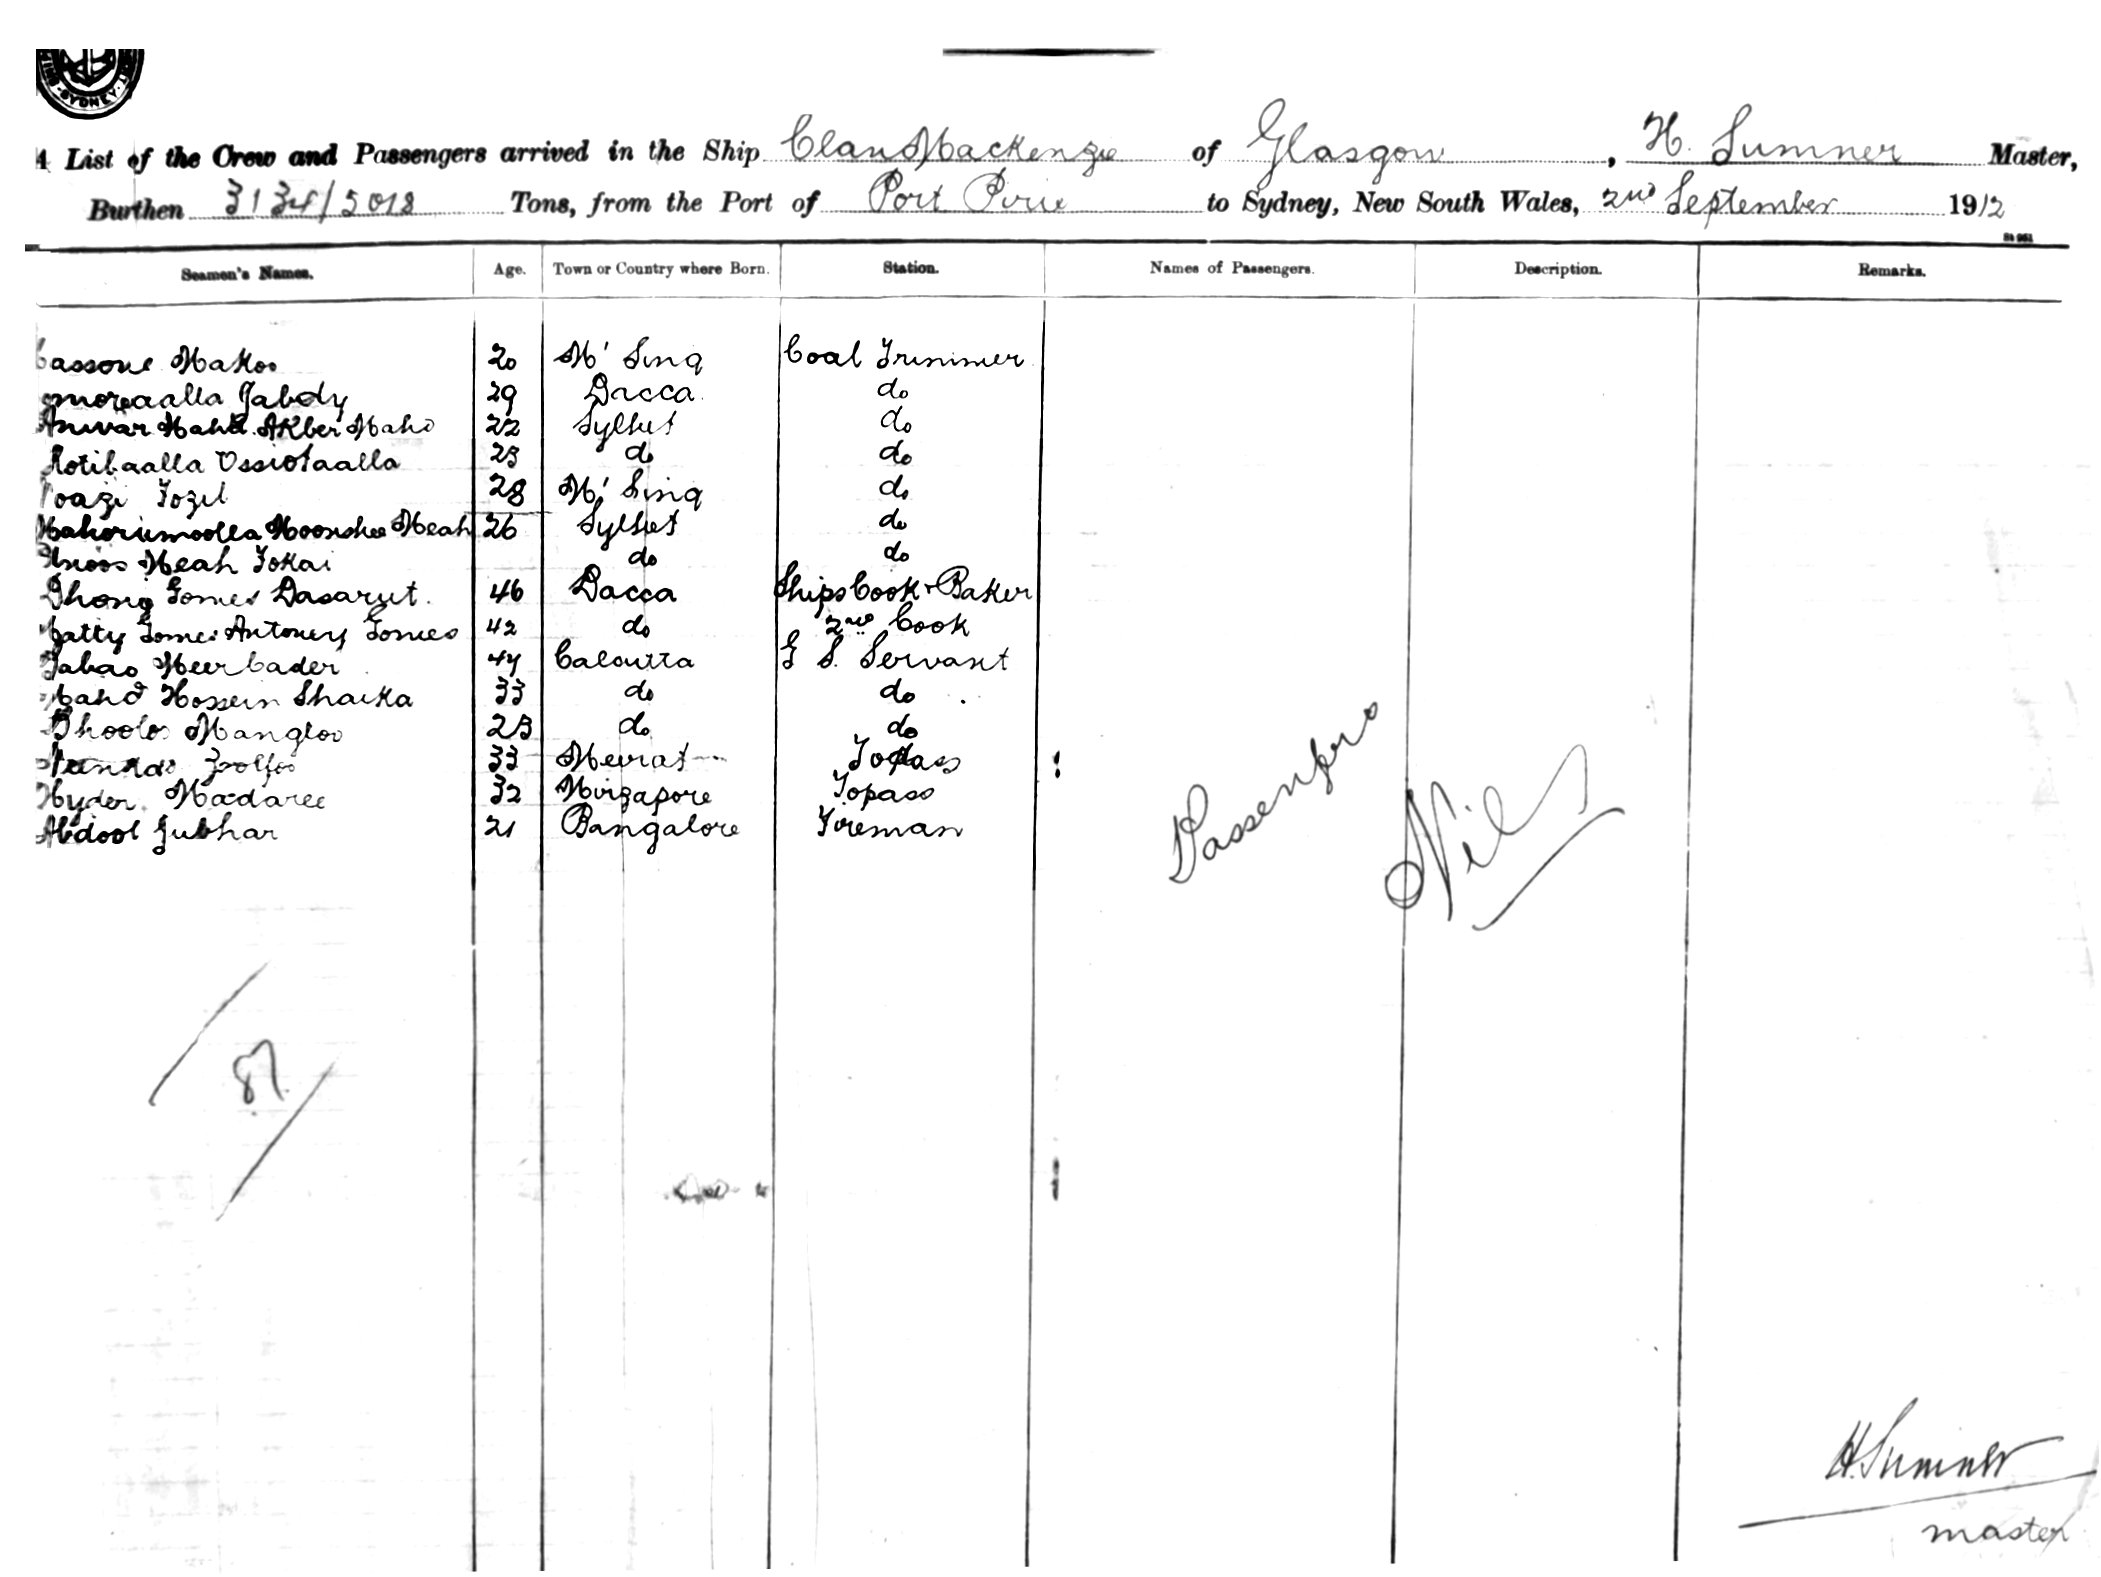 SYDNEY
A List of the Crew and Passengers arrived in the Ship Clan Mackenzie of Glasgow, H. Sumner Master,
Burthen 3134/5018 Tons, from the Port of Port Pirie to Sydney, New South Wales, 2nd September 1912
Seamen's Names. Age. Town or Country where Born. Station. Names of Passengers. Description. Remarks.
Makoo 20 M' Sing Coal Trimmer
Jabdy 29 Dacca do
Anwar Mahd. Akber Mahd 22 Sylhet do
Rotibaalla Ossiotaalla 23 do do
Fozil 28 M' Sing do
Mahorumoolla Moonshee Meah 26 Sylhet do
Meah Tokai do do
Dhong Gomes Dasarut. 46 Dacca Ships Cook & Baker
Gomes Antoney Gomes 42 do 2nd Cook
Meer Cader 44 Calcutta G S. Servant
Mahd Hossein Shaika 33 do do
Bhooloo Mangloo 23 do do
Zoolfoo 33 Meerat Topass
Hyder Madaree 32 Mirzapore Topass
Abdool Jubhar 21 Bangalore Fireman
Passengers
Nil
87
H. Sumner
master